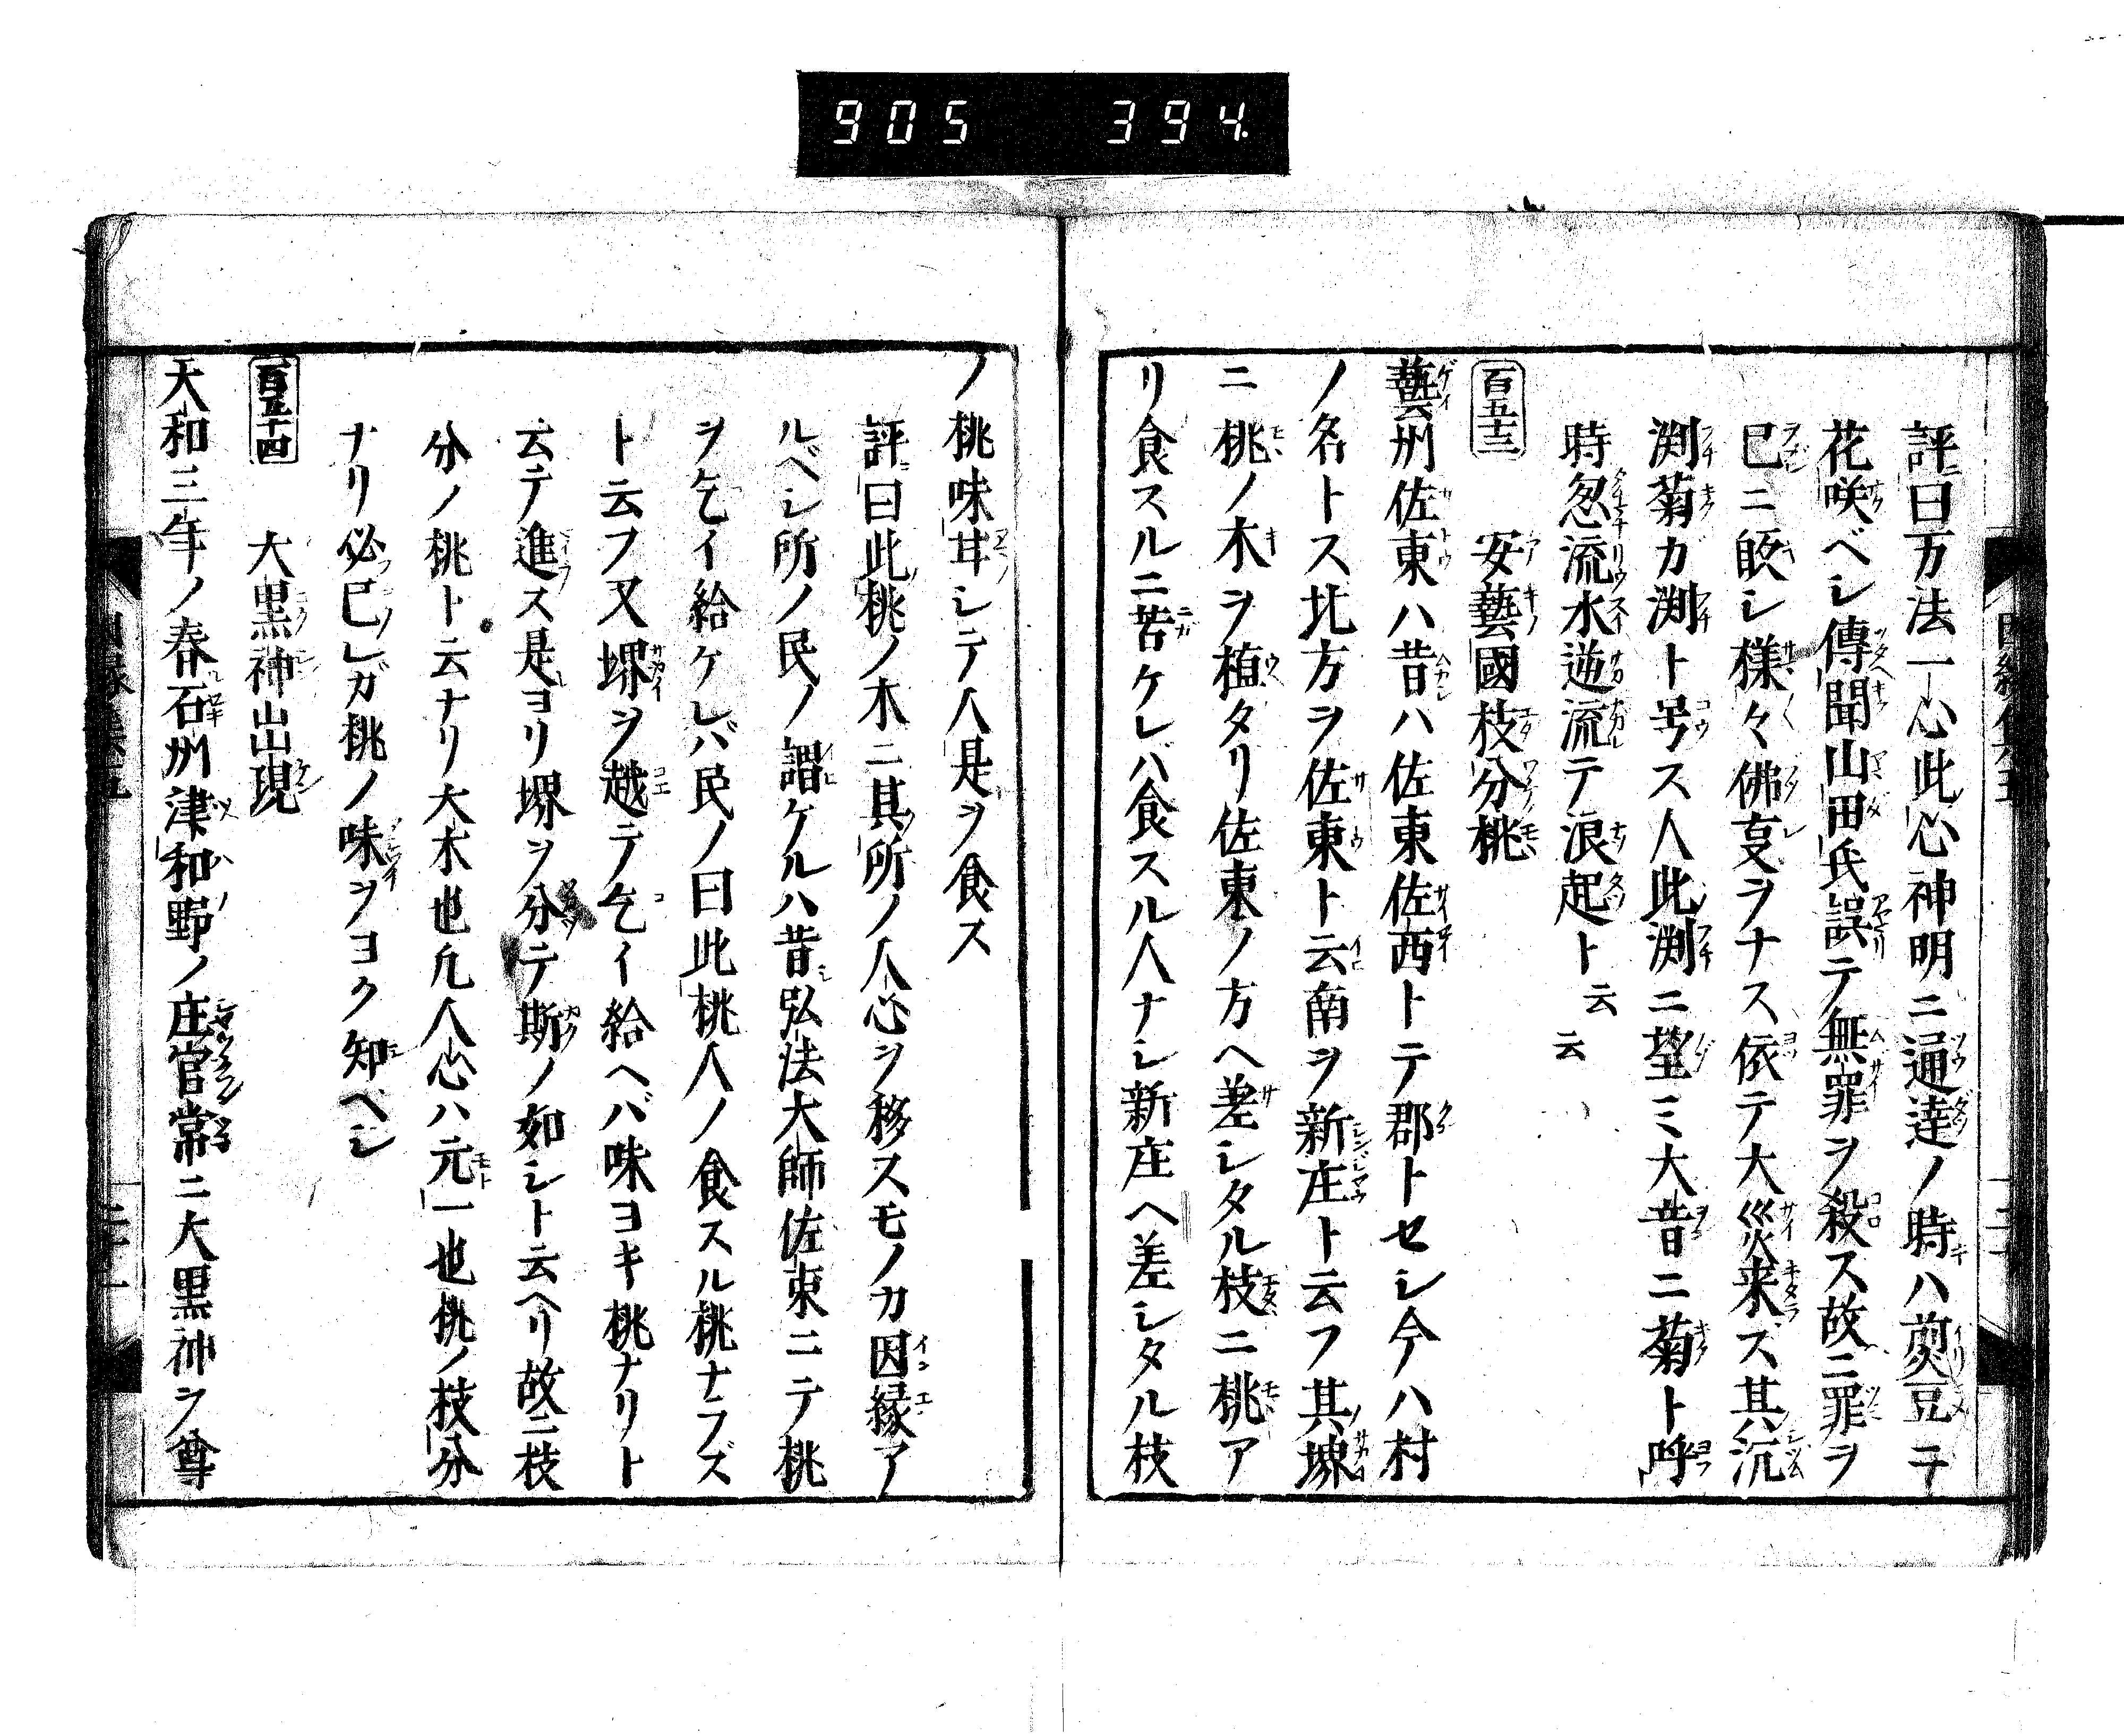 905 394.
評曰万法一心此心神明ニ通達ノ時ハ煎豆ニテ
花咲ベシ傳聞山田氏誤テ無罪ヲ殺ス故ニ罪ヲ
已ニ皈シ様々佛叓ヲナス依テ大災来ズ其沉
渕菊ガ渕ト号ス人此渕ニ望ミ大昔ニ菊ト呼
時忽流水逆流テ浪起ト云云
百五十三 安藝國枝分桃
藝州佐東ハ昔ハ佐東佐西トテ郡トセシ今ハ村
ノ名トス北方ヲ佐東ト云南ヲ新庄ト云フ其堺
ニ桃ノ木ヲ植タリ佐東ノ方ヘ差シタル枝ニ桃ア
リ食スルニ苦ケレバ食スル人ナシ新庄ヘ差シタル枝
ノ桃味甘シテ人是ヲ食ス
評曰此桃ノ木ニ其所ノ人心ヲ移スモノカ因縁ア
ルベシ所ノ民ノ謂ケルハ昔弘法大師佐東ニテ桃
ヲ乞イ給ケレバ民ノ曰此桃人ノ食スル桃ナラズ
ト云フ又堺ヲ越テ乞イ給ヘバ味ヨキ桃ナリト
云テ進ス是ヨリ堺ヲ分テ斯ノ如シト云ヘリ故ニ枝
分ノ桃ト云ナリ大木也凢人心ハ元一也桃ノ枝分
ナリ必已レガ桃ノ味ヲヨク知ベシ
百五十四 大黒神出現
天和三年ノ春石州津和野ノ庄官常ニ大黒神ヲ尊